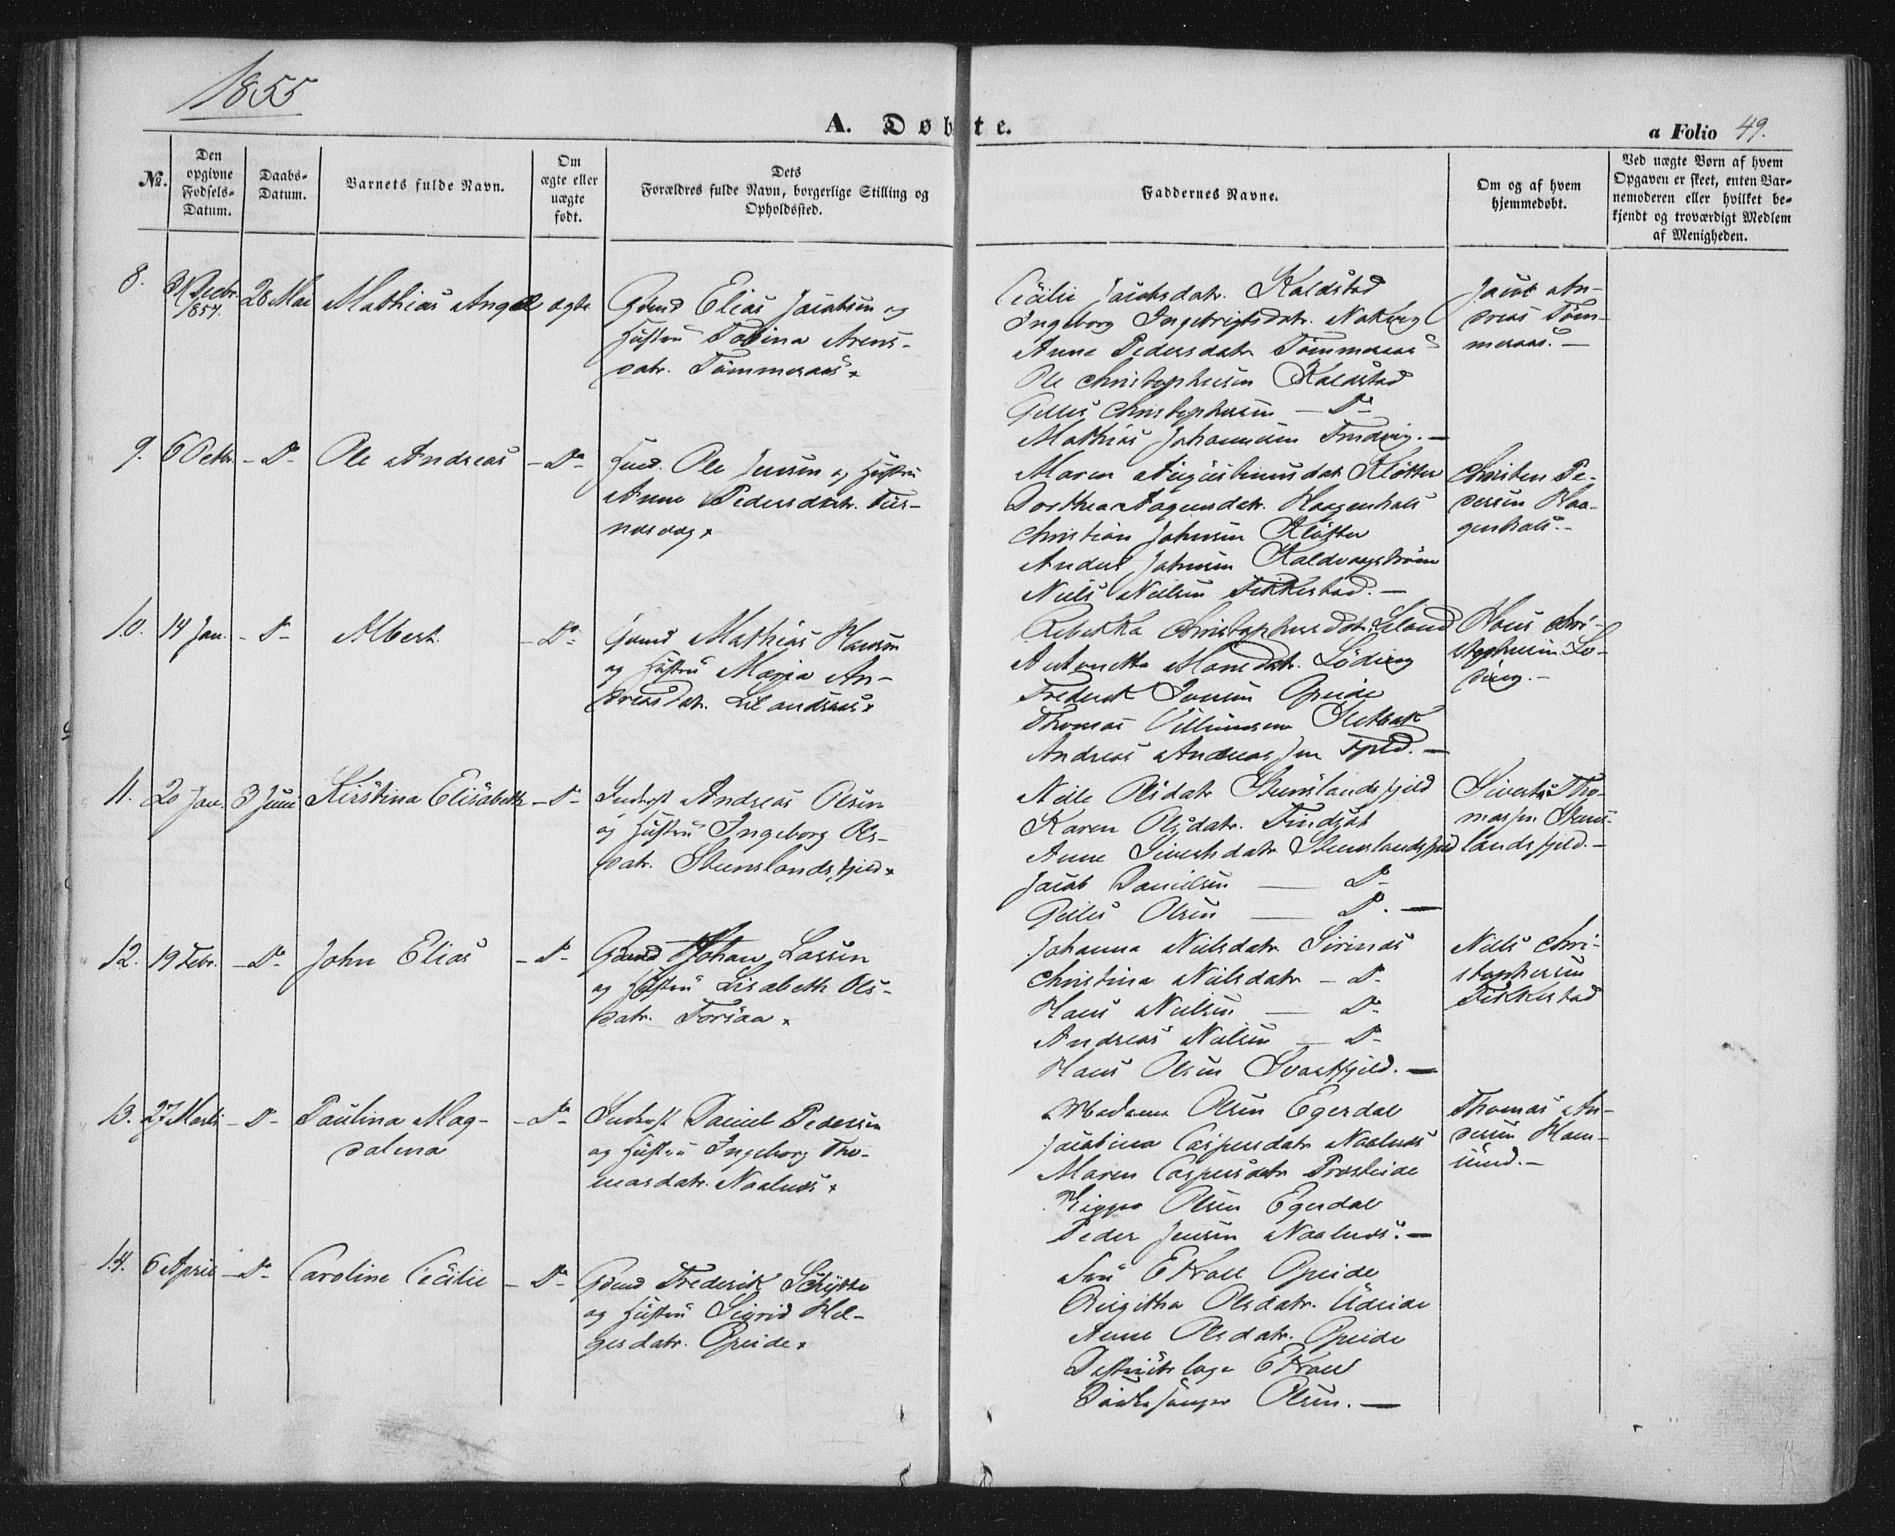 1855
A. Døbte.
a Folio 49.
No.
Den opgivne Fødsels-Datum.
Daabs-Datum.
Barnets fulde Navn.
Om ægte eller uægte født.
Dets Forældres fulde Navn, borgerlige Stilling og Opholdssted.
Faddernes Navne.
Om og af hvem hjemmedøbt.
Ved uægte Børn af hvem Opgaven er skeet, enten Barnemoderen eller hvilket bekjendt og troværdigt Medlem af Menigheden.
8. 31 Decbr. 1854. 28 Mai Mathias Angel ægte
Gmd Elias Jacobsen og
Hustru Tobina Arens-
datr. Tømmeraas
Cecilie Jacobsdatr. Kaldstad
Ingeborg Ingebrigtsdatr.
Anne Pedersdatr. Tømmeraas
Ole Christophersen Kaldstad
Christophersen – Do
Mathias Johannesen
Jacob An-
dreas Tøm-
meraas. –
9. 6 Octbr. – Do – Ole Andreas – Do –
Ole Jensen og Hustru
Anne Pedersdatr.
Maren Augustinusdatr Kløtter
Dorthea Aagensdatr. Haagenhals
Christian Johnsen
Anders Johnsen Kaldvaagstrøm
Niels Nielsen Fikkestad. –
Christen Pe-
dersen Haa-
genhals. –
10. 14 Jan. – Do – Albert – Do –
Gmd Mathias Hansen
og Hustru Maria An-
dreasdatr.
Rebekka Christophersdatr.
Antonette Monsdatr. Løding
Frederik Jonsen Opeide
Thomas Villumsen
Andreas Andreassen Fjeld. –
Hans Chri-
stophersen Lø-
ding. –
11. 20 Jan. 3 Juni Kirstina Elisabeth – Do –
Indrost Andreas Olsen
og Hustru Ingeborg Ols-
datr. Stenslandsfjeld
Nille Olsdatr Stenslandsfjeld
Karen Olsdatr.
Anne Sivertsdatr Stenslandsfjeld
Jacob Danielsen – Do –
Olsen – Do. –
Sivert Tho-
massen Stens-
landsfjeld. –
12. 19 Febr. – Do – John Elias – Do –
Gmd Johan Larsen
og Hustru Lisabeth Ols-
datr. Forsaa
Johanna Nielsdatr
Christina Nielsdatr – Do –
Hans Nielsen – Do –
Andreas Nielsen – Do –
Hans Olsen Svartfjeld. –
Niels Chri-
stophersen
Fikkestad
13. 27 Marts – Do – Paulina Mag-
dalena – Do –
Indrost Daniel Pedersen
og Hustru Ingeborg Tho-
masdatr. Naalnæs
Madame Olsen Egerdal
Jacobina Caspersdatr Naalnæs
Maren Caspersdatr Presteide
Olsen Egerdal
Peder Jensen Naalnæs. –
Thomas An-
dersen Ham-
sund. –
14. 6 April – Do – Caroline Cecilie – Do –
Gmd Frederik Schjøtte
og Hustru Sigrid Hel-
gesdatr. Opeide
Fru Ekroll Opeide
Birgitha Olsdatr. Udeide
Anne Olsdatr. Opeide
Ekroll
Kirkesanger Olsen. –